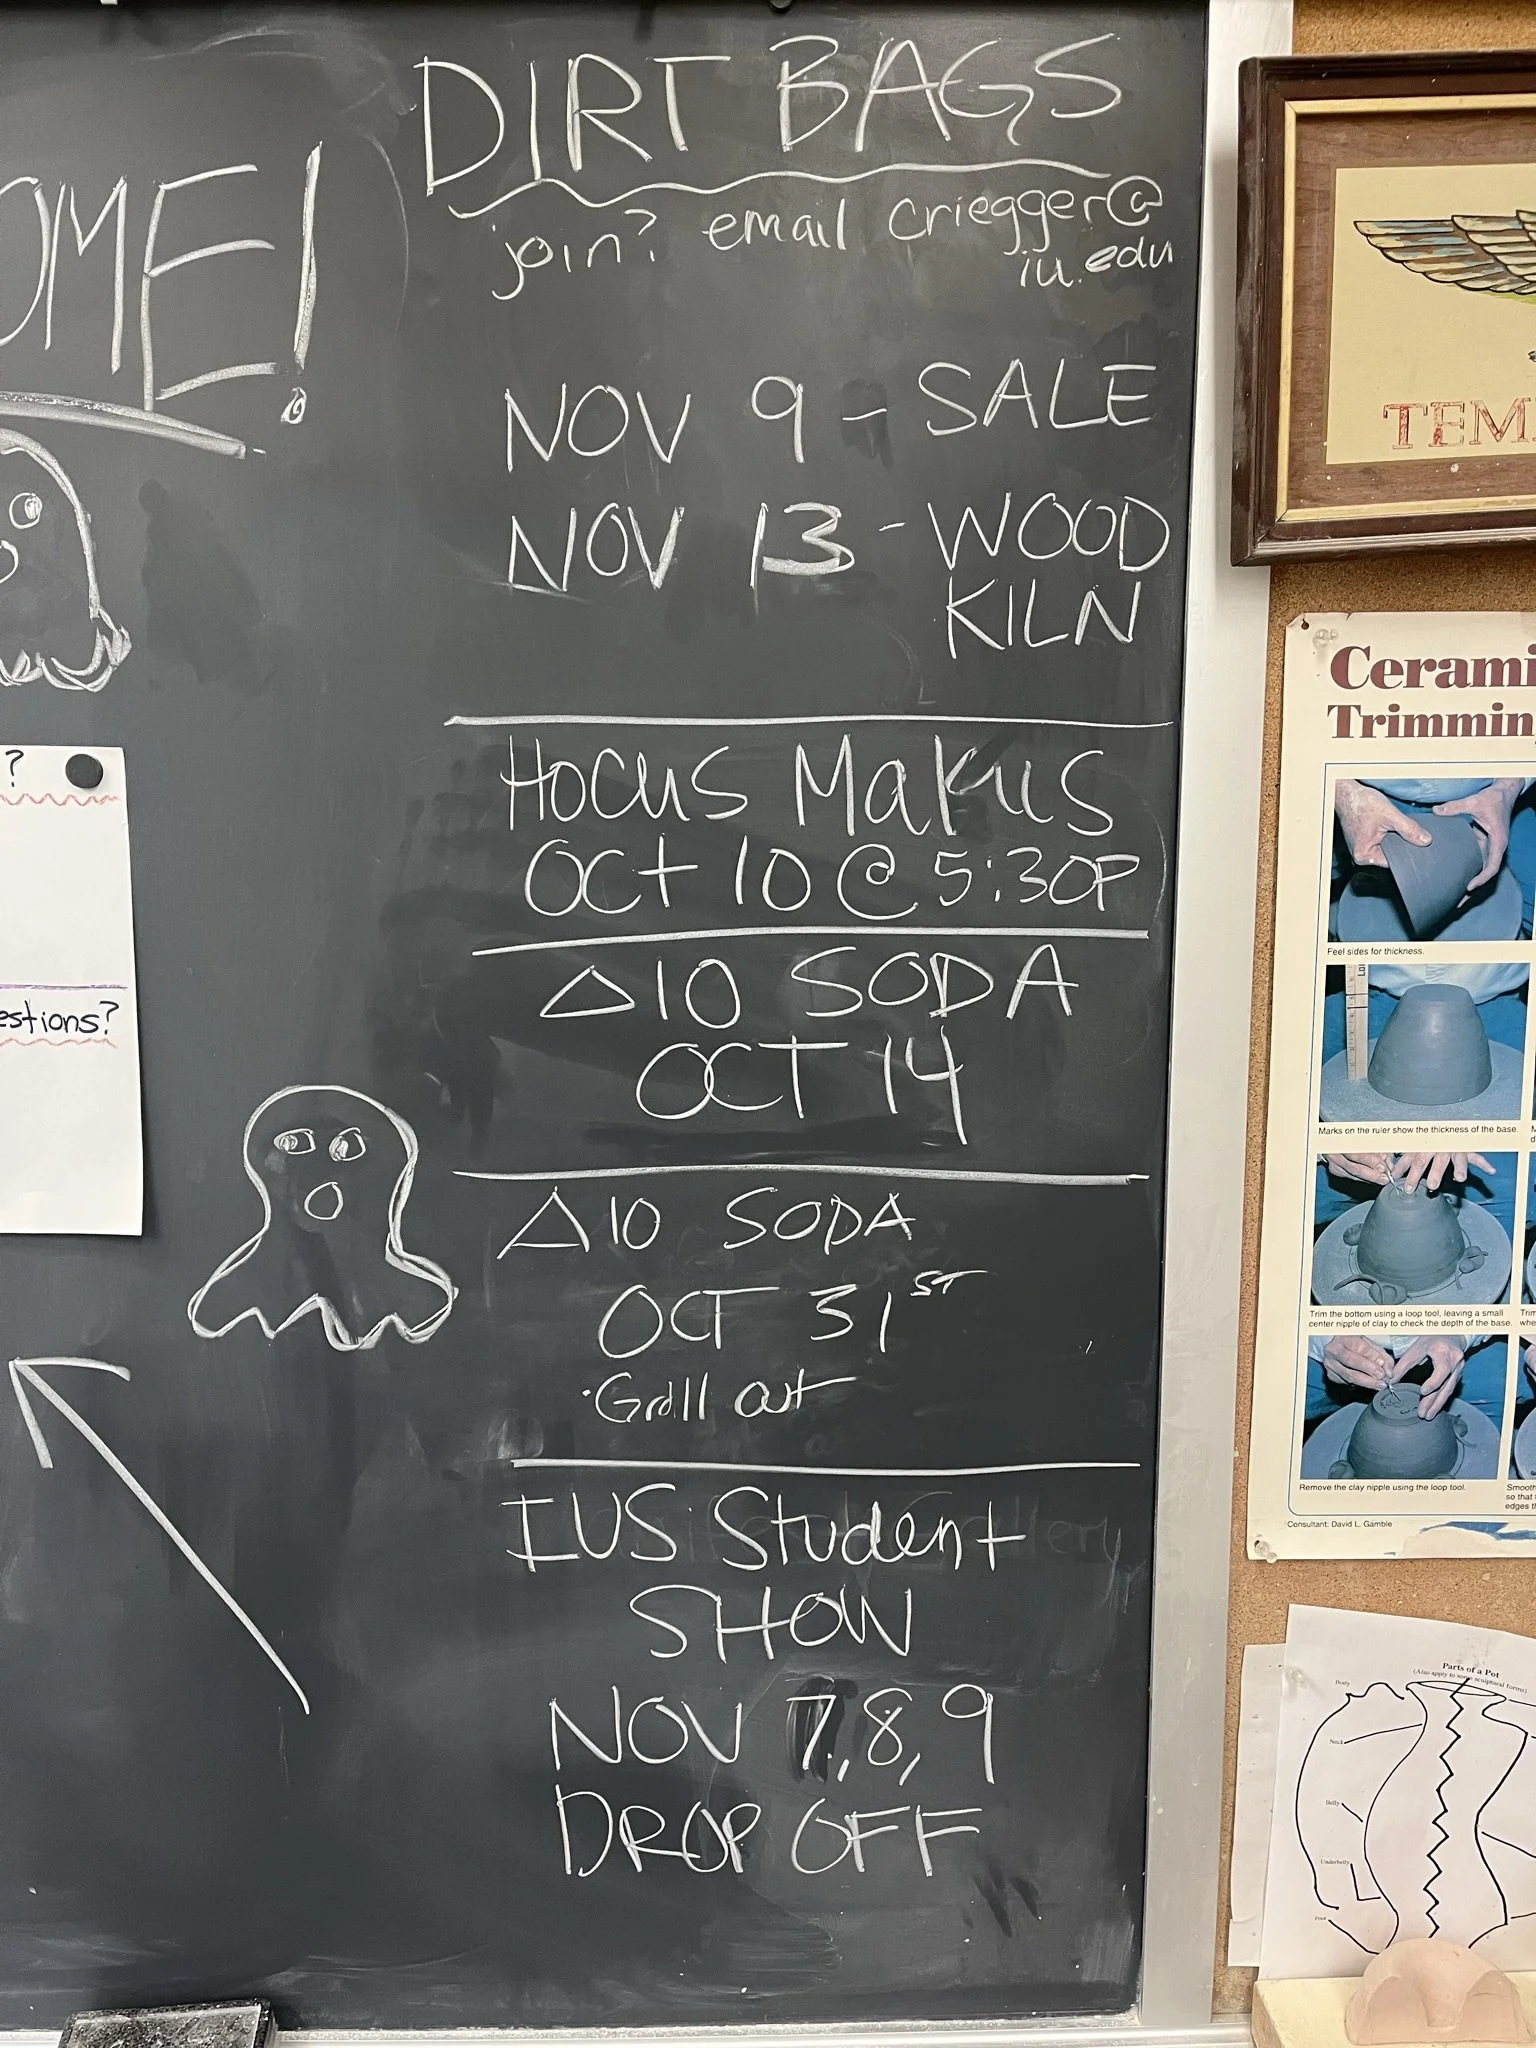 DIRT BAGS
join? email criegger@
iu.edu
NOV 9 - SALE
NOV 13 - WOOD
KILN
HOCUS MAKUS
OCT 10 @ 5:30P
△10 SODA
OCT 14
△10 SODA
OCT 31ST
·Grill out
IUS Student
SHOW
NOV 7, 8, 9
DROP OFF
OME!
?
estions?
TEM
Cerami
Trimmin
Feel sides for thickness.
Marks on the ruler show the thickness of the base.
Trim the bottom using a loop tool, leaving a small
center nipple of clay to check the depth of the base.
Remove the clay nipple using the loop tool.
Smooth
so that
edges
Consultant: David L. Gamble
Parts of a Pot
(Also apply to some sculptural forms)
Body
Neck
Belly
Underbelly
Foot